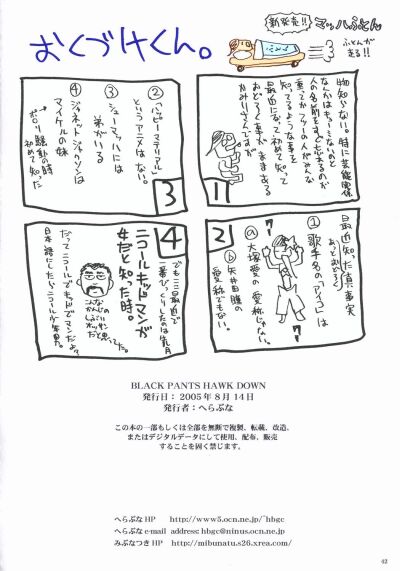 おくづけくん。
新発売!!
マッハふとん
ふとんが
走る!!
1
物知らない。特に芸能関係
なんかはもう〜ミないのと
人の名前をすぐ忘れるのが
重なってか フツーの人がみんな
知ってるような事を
最近になって初めて知って
おどろく事がままある
かみりさんですが
2
最近知った真事実
あっとおどろく
① 歌手名の「アイコ」は
ⓐ 大塚愛の愛称じゃない。
ⓑ 矢井田瞳の
愛称でもない。
3
② ハッピーマテリアル
というアニメはない。
③ シューマッハには
弟がいる
④ ジャネットジャクソンは
マイケルの妹
→ポロリ騒動の時
初めて知った
4
でも ここ最近で
一番びっくりしたのは先月
ニコールキッドマンが
女だと知った時。
こんな
かんじの
しぶい
オッサン
だと
思ってた。
だってニコールでキッドでマンだよ?
日本語にしたらニコール少年男。
BLACK PANTS HAWK DOWN
発行日:2005年8月14日
発行者:へらぶな
この本の一部もしくは全部を無断で複製、転載、改造、
またはデジタルデータにして使用、配布、販売
することを固く禁じます。
へらぶなHP http://www5.ocn.ne.jp/~hbgc
へらぶなe-mail address: hbgc@ninus.ocn.ne.jp
みぶなつきHP http://mibunatu.s26.xrea.com/
42